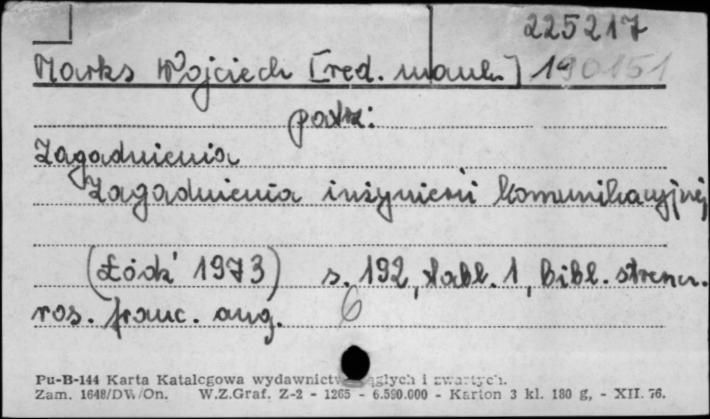 225217
Marks Wojciech [red. nauk.] 190151
patrz:
Zagadnienia
Zagadnienia inżynierii komunikacyjnej
(Łódź 1973) s. 192, tabl. 1, Bibl. streszcz.
ros. franc. ang. 6
Pu-B-144 Karta Katalogowa wydawnictw ciągłych i zwartych.
Zam. 1648/DW/On. W.Z.Graf. Z-2 - 1265 - 6.590.000 - Karton 3 kl. 180 g, - XII. 76.